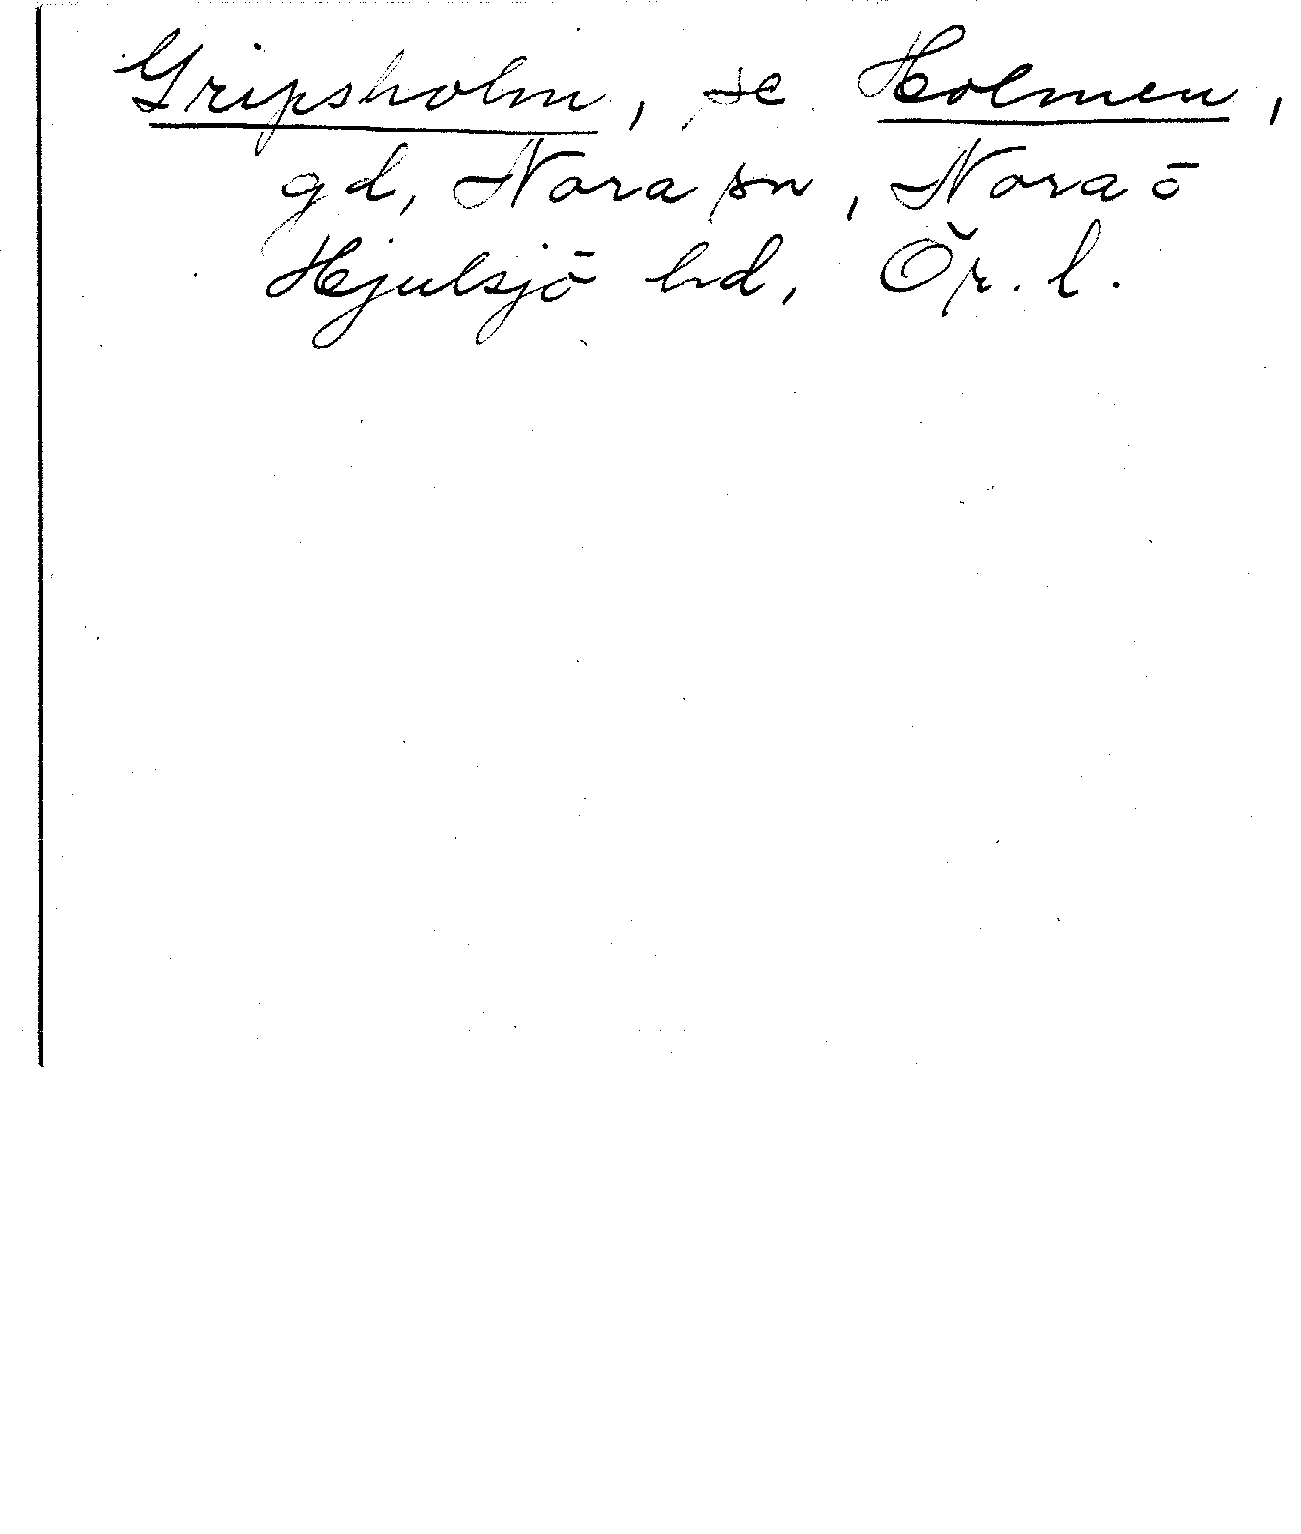 Gripsholm, se Holmen,
gd, Nora sn, Nora o
Hjulsjö hd, Ör. l.